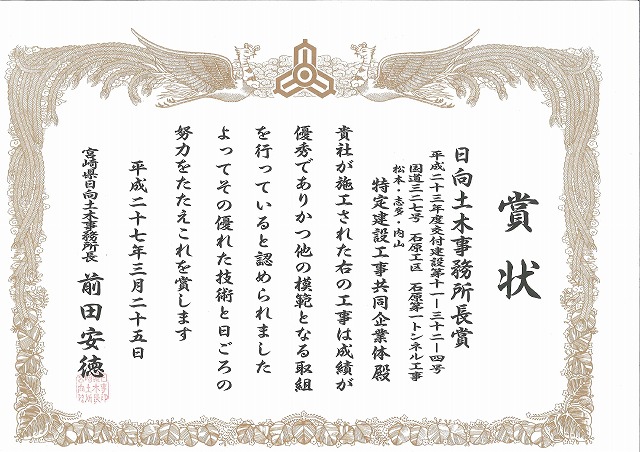 賞状
日向土木事務所長賞
平成二十三年度交付建設第十一―三十二―四号
国道三二七号 石原工区 石原第一トンネル工事
松本・志多・内山
特定建設工事共同企業体 殿
貴社が施工された右の工事は成績が
優秀でありかつ他の模範となる取組
を行っていると認められました
よってその優れた技術と日ごろの
努力をたたえこれを賞します
平成二十七年三月二十五日
宮崎県日向土木事務所長 前田安徳